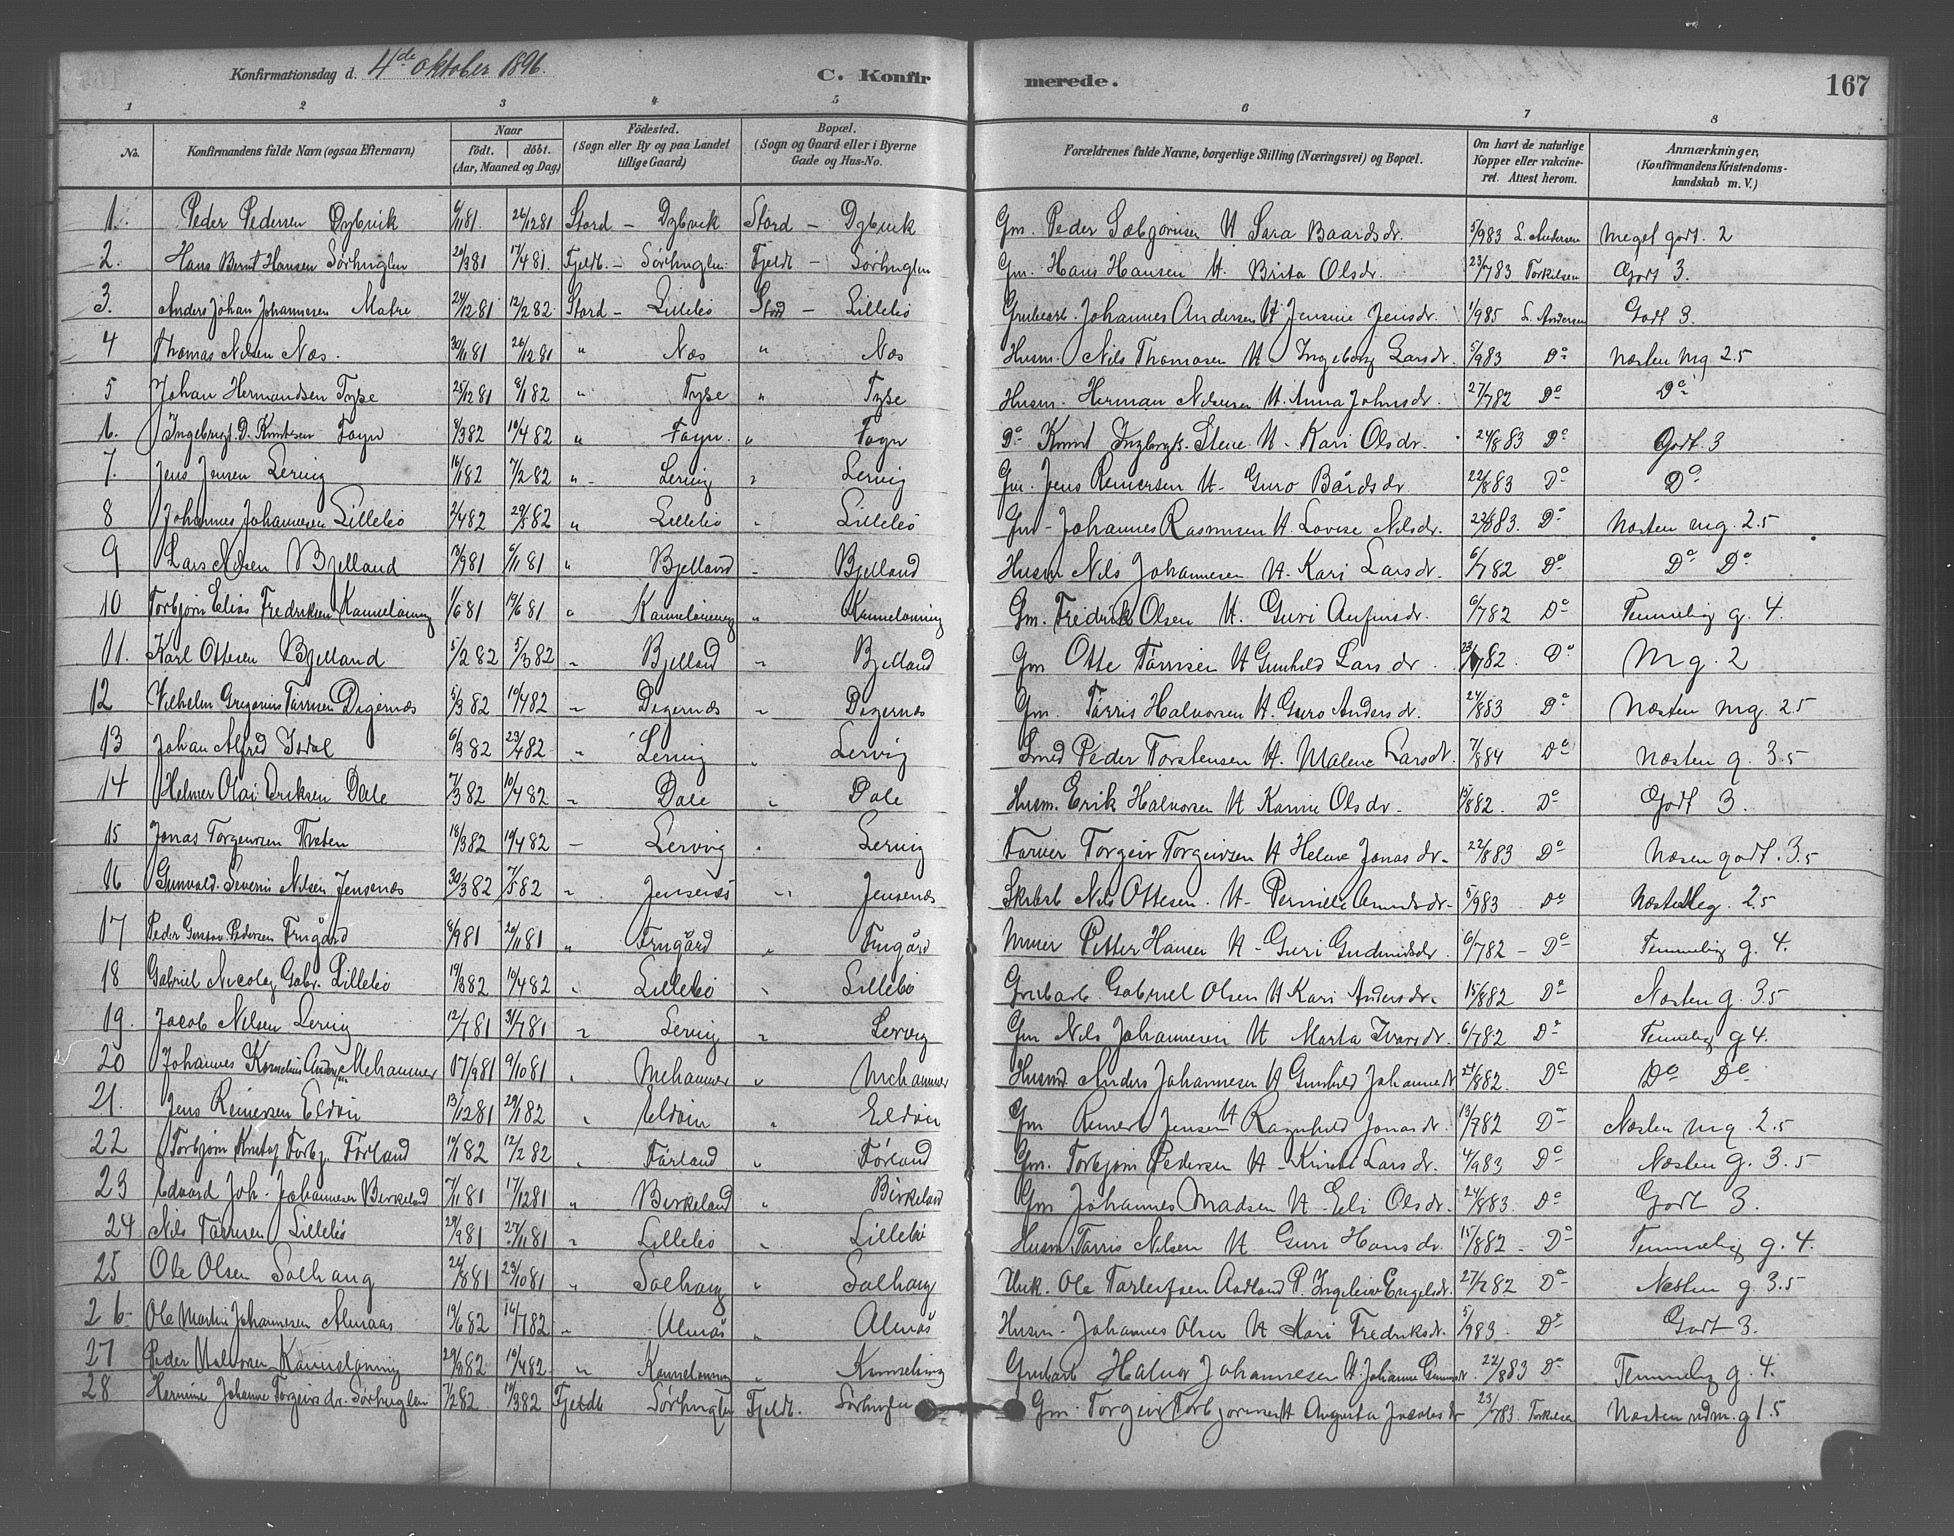 Konfirmationsdag d. 4de Oktober 1896. C. Konfirmerede. 167
1 2 3 4 5 6 7 8
No. Konfirmandens fulde Navn (ogsaa Efternavn) Naar födt. döbt. (Aar, Maaned og Dag) Födested. (Sogn eller By og paa Landet tillige Gaard) Bopæl. (Sogn og Gaard eller i Byerne Gade og Hus-No. Forældrenes fulde Navne, borgerlige Stilling (Næringsvei) og Bopæl. Om havt de naturlige Kopper eller vakcineret. Attest herom. Anmærkninger, (Konfirmandens Kristendomskundskab m. V.)
1. Peder Pedersen Dybvik 6/11 81. 26/12 81 Stord – Dybvik Stord – Dybvik Gm. Peder Sæbjørnsen H Sara Baardsdr. 5/9 83 L. Andersen Meget godt. 2
2. Hans Bernt Hansen Sørhuglen 20/3 81 17/4 81. Fjeldb. – Sørhuglen Fjeldb. – Sørhuglen Gm. Hans Hansen H. Brita Olsdr. 23/7 83 Torkelsen Godt 3.
3. Anders Johan Johannesen Matre 24/12 81 12/2 82 Stord – Lillebö Stord – Lillebö Grubearb. Johannes Andersen H Jensine Jensdr. 1/9 85 L. Andersen Godt 3.
4 Thomas Nilsen Næs. 30/11 81 26/12 81 " Næs " Næs Husm. Nils Thomasen H Ingeborg Larsdr. 5/9 83 Do Næsten mg 2.5
5 Johan Hermandsen Tyse 25/12 81 8/1 82 " Tyse " Tyse Husm. Herman Nilsen H. Anna Johnsdr. 27/7 82 Do Do
6. Ingebrigt. D. Knutsen Fagn 8/3 82 10/4 82 " Fagn. " Fagn Do Knut Ingbrigts. Stene H. Kari Olsdr. 24/8 83 Do Godt. 3
7. Jens Jensen Lervig 16/1 82 7/2 82 " Lervig " Lervig Gm. Jens Reinertsen H. Guro Bårdsdr 22/8 83 Do Do
8 Johannes Johannesen Lillebö 2/4 82 29/5 82 " Lillebö " Lillebö Gm. Johannes Rasmusen H. Lovise Nilsdr. 22/8 83. Do Næsten mg. 2.5
9 Lars Nilsen Bjelland 13/9 81 6/11 81 " Bjelland " Bjelland Husm Nils Johannesen H. Kari Larsdr. 6/7 82 Do Do Do
10 Torbjørn Elias Fredriksen Kanneløning 1/6 81 19/6 81 " Kanneløning " Kanneløning Gm. Fredrik Olsen H. Guri Anfinsdr. 6/7 82 Do Temmelig g. 4.
11. Karl Ottesen Bjelland 5/2 82 5/3 82 " Bjelland " Bjelland Gm Otte Tørrisen H Gunhild Larsdr. 23/7 82. Do Mg. 2
12 Vilhelm Gregorius Tørrisen Digernæs 5/3 82 10/4 82 " Digernæs " Digernæs Gm. Tørris Halvorsen H. Guro Andersdr. 24/8 83 Do Næsten mg. 2.5
13 Johan Alfred 6/3 82 23/4 82 " Lervig " Lervig Smed Peder Torstensen H. Malene Larsdr. 7/8 84 Do Næsten g. 3.5
14 Helmer Olai Eriksen Dale 7/3 82 10/4 82 " Dale " Dale Husm. Erik Halvorsen H Karine Olsdr. 15/8 82. Do Godt 3.
15 Jonas Torgeirsen Tveten 18/3 82 10/4 82 – Lervig " Lervig Farver Torgeir Torgeirsen H Helene Jonasdr. 22/8 83 Do Næsen godt. 3.5
16 Gunvald Severin Nilsen Jensenæs 30/3 82 7/5 82 " Jensenæs " Jensenæs Nils Ottesen. H. Pernille Amundsdr. 5/9 83 Do Næsten Mg. 2.5
17 Peder Gustav Pedersen Frugård 8/9 81 20/11 81 " Frugård " Frugård Minér Petter Hansen H. Guri Gudmundsdr. 6/7 82 – Do Temmelig g. 4.
18 Gabriel Nicolay Gabr. Lillebö 14/3 82 10/4 82 " Lillebö " Lillebö Grubarb. Gabriel Olsen H Kari Andersdr. 15/8 82 Do Næsten g. 3.5
19. Jacob Nilsen Lervig 12/7 81 31/7 81 " Lervig " Lervig Gm Nils Johannesen H Marta Ivarsdr. 6/7 82 Do Temmelig g 4.
20 Johannes Kornelius Anders. Mehammer 17/9 81 9/10 81 " Mehammer " Mehammer Husmd Anders Johannesen H Gunhild Johannesdr. 24/8 82. Do Do Do
21. Jens Reinertsen Eldöin 13/12 81 29/1 82 " Eldöin " Eldöin Gm Reinert Jensen H Ragnhild Jonasdr. 13/9 82 Do Næsten mg. 2.5
22 Torbjørn Knut Torbj. Førland 10/1 82 12/2 82 " Førland " Førland Gm. Torbjørn Pedersen H. Kirste Larsdr. 4/9 83 Do Næsten g. 3.5
23 Edvard Joh. Johannesen Birkeland 7/11 81 17/12 81 " Birkeland " Birkeland Gm Johannes Madsen H. Eli Olsdr. 24/8 83. Do Godt 3.
24 Nils Tørrisen Lillebö 29/9 81 27/11 81 " Lillebö " Lillebö Husm Tørris Nilsen H Guri Hansdr. 15/8 82 – Do Temmelig g. 4.
25 Ole Olsen Solhaug 20/8 81 23/10 81 " Solhaug " Solhaug Unk. Ole Tarleifsen Aadland P. Ingeleiv Engelsdr. 27/7 82 Do Næsten g 3.5
26 Ole Martin Johannesen Almaas 19/6 82 16/7 82 " Almås " Almås Husm. Johannes Olsen H Kari Fredriksdr. 5/9 83. Do Godt 3.
27 Peder Halvorsen Kanneløning 29/3 82 10/4 82. " Kanneløning " Kanneløning Grubarb Halvor Johannesen H. Johanne 22/8 83 Do Temmelig g. 4.
28 Hermine Johanne Torgeirsdr. Sørhuglen 7/2 82 19/3 82 Fjeldb. Sørhuglen Fjeldb. Sørhuglen Gm. Torgeir Torbjørnsen H Augusta Jacobsdr 23/7 83. Torkelsen Næsten udm. g 1.5